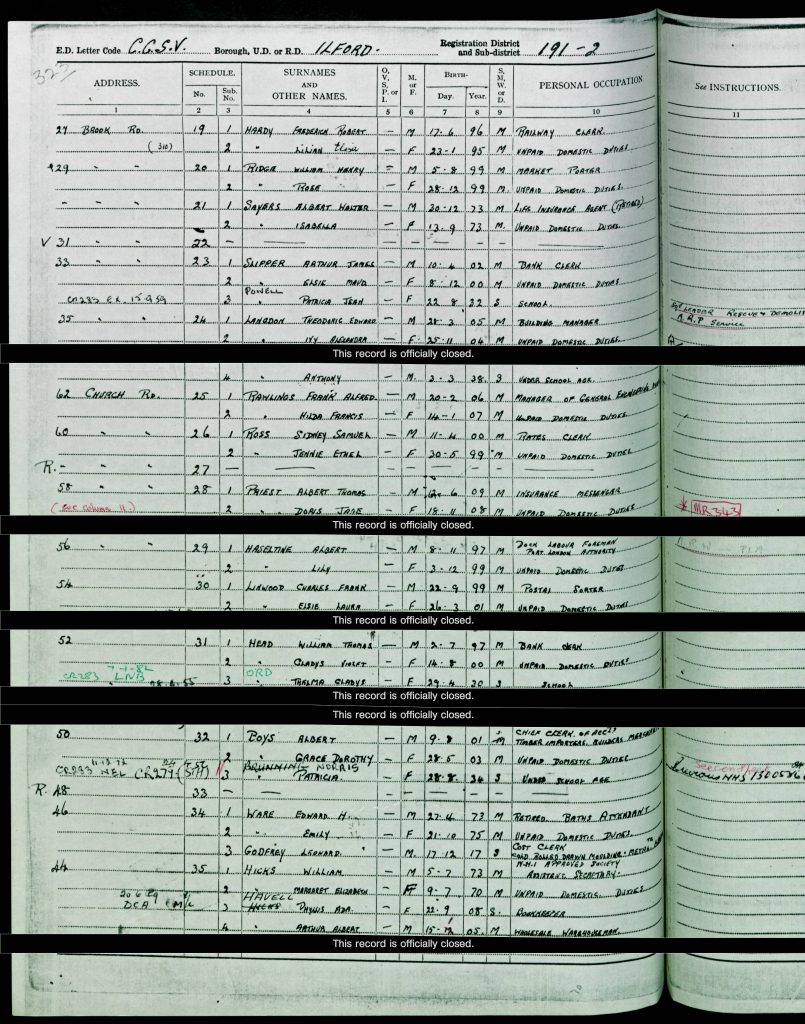 E.D. Letter Code C.C.S.V. Borough, U.D. or R.D. ILFORD. Registration District and Sub-district 191-2
ADDRESS. SCHEDULE. No. Sub. No. SURNAMES AND OTHER NAMES. O, V, S, P. or I. M. or F. BIRTH- Day. Year. S, M, W, or D. PERSONAL OCCUPATION. See INSTRUCTIONS.
1 2 3 4 5 6 7 8 9 10 11
27 BROOK RD. 19 1 HARDY FREDERICK ROBERT - M 17-6 96 M RAILWAY CLERK.
(310) 2 " LILIAN - F 23-1 95 M UNPAID DOMESTIC DUTIES
29 " " 20 1 RIDGE WILLIAM HENRY - M 5-8 99 M MARKET PORTER
2 " ROSE - F 28-12 99 M UNPAID DOMESTIC DUTIES.
- - - 21 1 SAYERS ALBERT WALTER - M 30-12 73 M LIFE INSURANCE AGENT (RETIRED)
2 " ISABELLA - F 13-9 73 M. UNPAID DOMESTIC DUTIES.
V 31 " " 22 - - - - - -
33 " " 23 1 SLIPPER ARTHUR JAMES - M 10-4 02 M BANK CLERK
2 " ELSIE MAUD - F 8-12 00 M UNPAID DOMESTIC DUTIES
POWELL
CR283 15959 3 " PATRICIA JEAN - F 22 8 32 S SCHOOL.
35 " " 24 1 LANGDON THEODORIC EDWARD - M 28-3 05 M BUILDING MANAGER LEADER RESCUE & DEMOLI
A.R.P SERVICE
2 " IVY ALEXANDRA - F 25-11 04 M UNPAID DOMESTIC DUTIES.
This record is officially closed.
4 " ANTHONY - M. 3-3 38. S UNDER SCHOOL AGE.
62 CHURCH RD. 25 1 RAWLINGS FRANK ALFRED. - M 20-2 06 M MANAGER OF GENERAL ENGINEERING
2 " HILDA FRANCIS - F 14-1 07 M UNPAID DOMESTIC DUTIES.
60 " " 26 1 ROSS SIDNEY SAMUEL - M 11-4 00 M RATES CLERK
2 " JENNIE ETHEL - F 30-5 99 M UNPAID DOMESTIC DUTIES
R. - " " 27 - - - - - -
58 28 1 PRIEST ALBERT THOMAS - M 6 09 M INSURANCE MESSENGER
(See Column 11.) 2 " DORIS JANE - F 18-11 08 M UNPAID DOMESTIC DUTIES * MR343
This record is officially closed.
56 " " 29 1 HASELTINE ALBERT - M 8-11 97 M DOCK LABOUR FOREMAN
PORT LONDON AUTHORITY
2 " LILY - F 3-12 99 M UNPAID DOMESTIC DUTIES
54 30 1 LINWOOD CHARLES FRANK - M 22-9 99 M POSTAL SORTER
2 " ELSIE LAURA - F 26-3 01 M UNPAID DOMESTIC DUTIES
This record is officially closed.
52 31 1 HEAD WILLIAM THOMAS - M 2-7 97 M BANK CLERK
7-1-82 2 " GLADYS VIOLET - F 14-8 00 M UNPAID DOMESTIC DUTIES
CR283 LNB ORD
3 " THELMA GLADYS - F 29-4 20 S SCHOOL
This record is officially closed.
This record is officially closed.
50 32 1 BOYS ALBERT - M 9-8 01 M CHIEF CLERK OF ACCTS
TIMBER IMPORTERS, BUILDERS MERCHANTS
2 " GRACE DOROTHY - F 28-5 03 M UNPAID DOMESTIC DUTIES
BRUNNING NORRIS
CR283 NEL CR279 3 " PATRICIA - F 28-8 34 S UNDER SCHOOL AGE
R. 48 33 - - - - - -
46 34 1 WARE EDWARD H. - M 27-4 73 M RETIRED BATHS ATTENDANT
2 " EMILY - F 21-10 75 M UNPAID DOMESTIC DUTIES.
3 GODFREY LEONARD. - M. 17-12 17 S COST CLERK
COLD ROLLED DRAWN MOULDING - METAL
44 35 1 HICKS WILLIAM - M 5-7 73 M N.H.I APPROVED SOCIETY
ASSISTANT SECRETARY.
2 " MARGARET ELIZABETH - F 9-7 70 M UNPAID DOMESTIC DUTIES
HAVELL
DCA 3 HICKS PHYLLIS ADA. - F 22-9 08 S. BOOKKEEPER
4 " ARTHUR ALBERT - M 15- 05. M WHOLESALE WAREHOUSEMAN.
This record is officially closed.